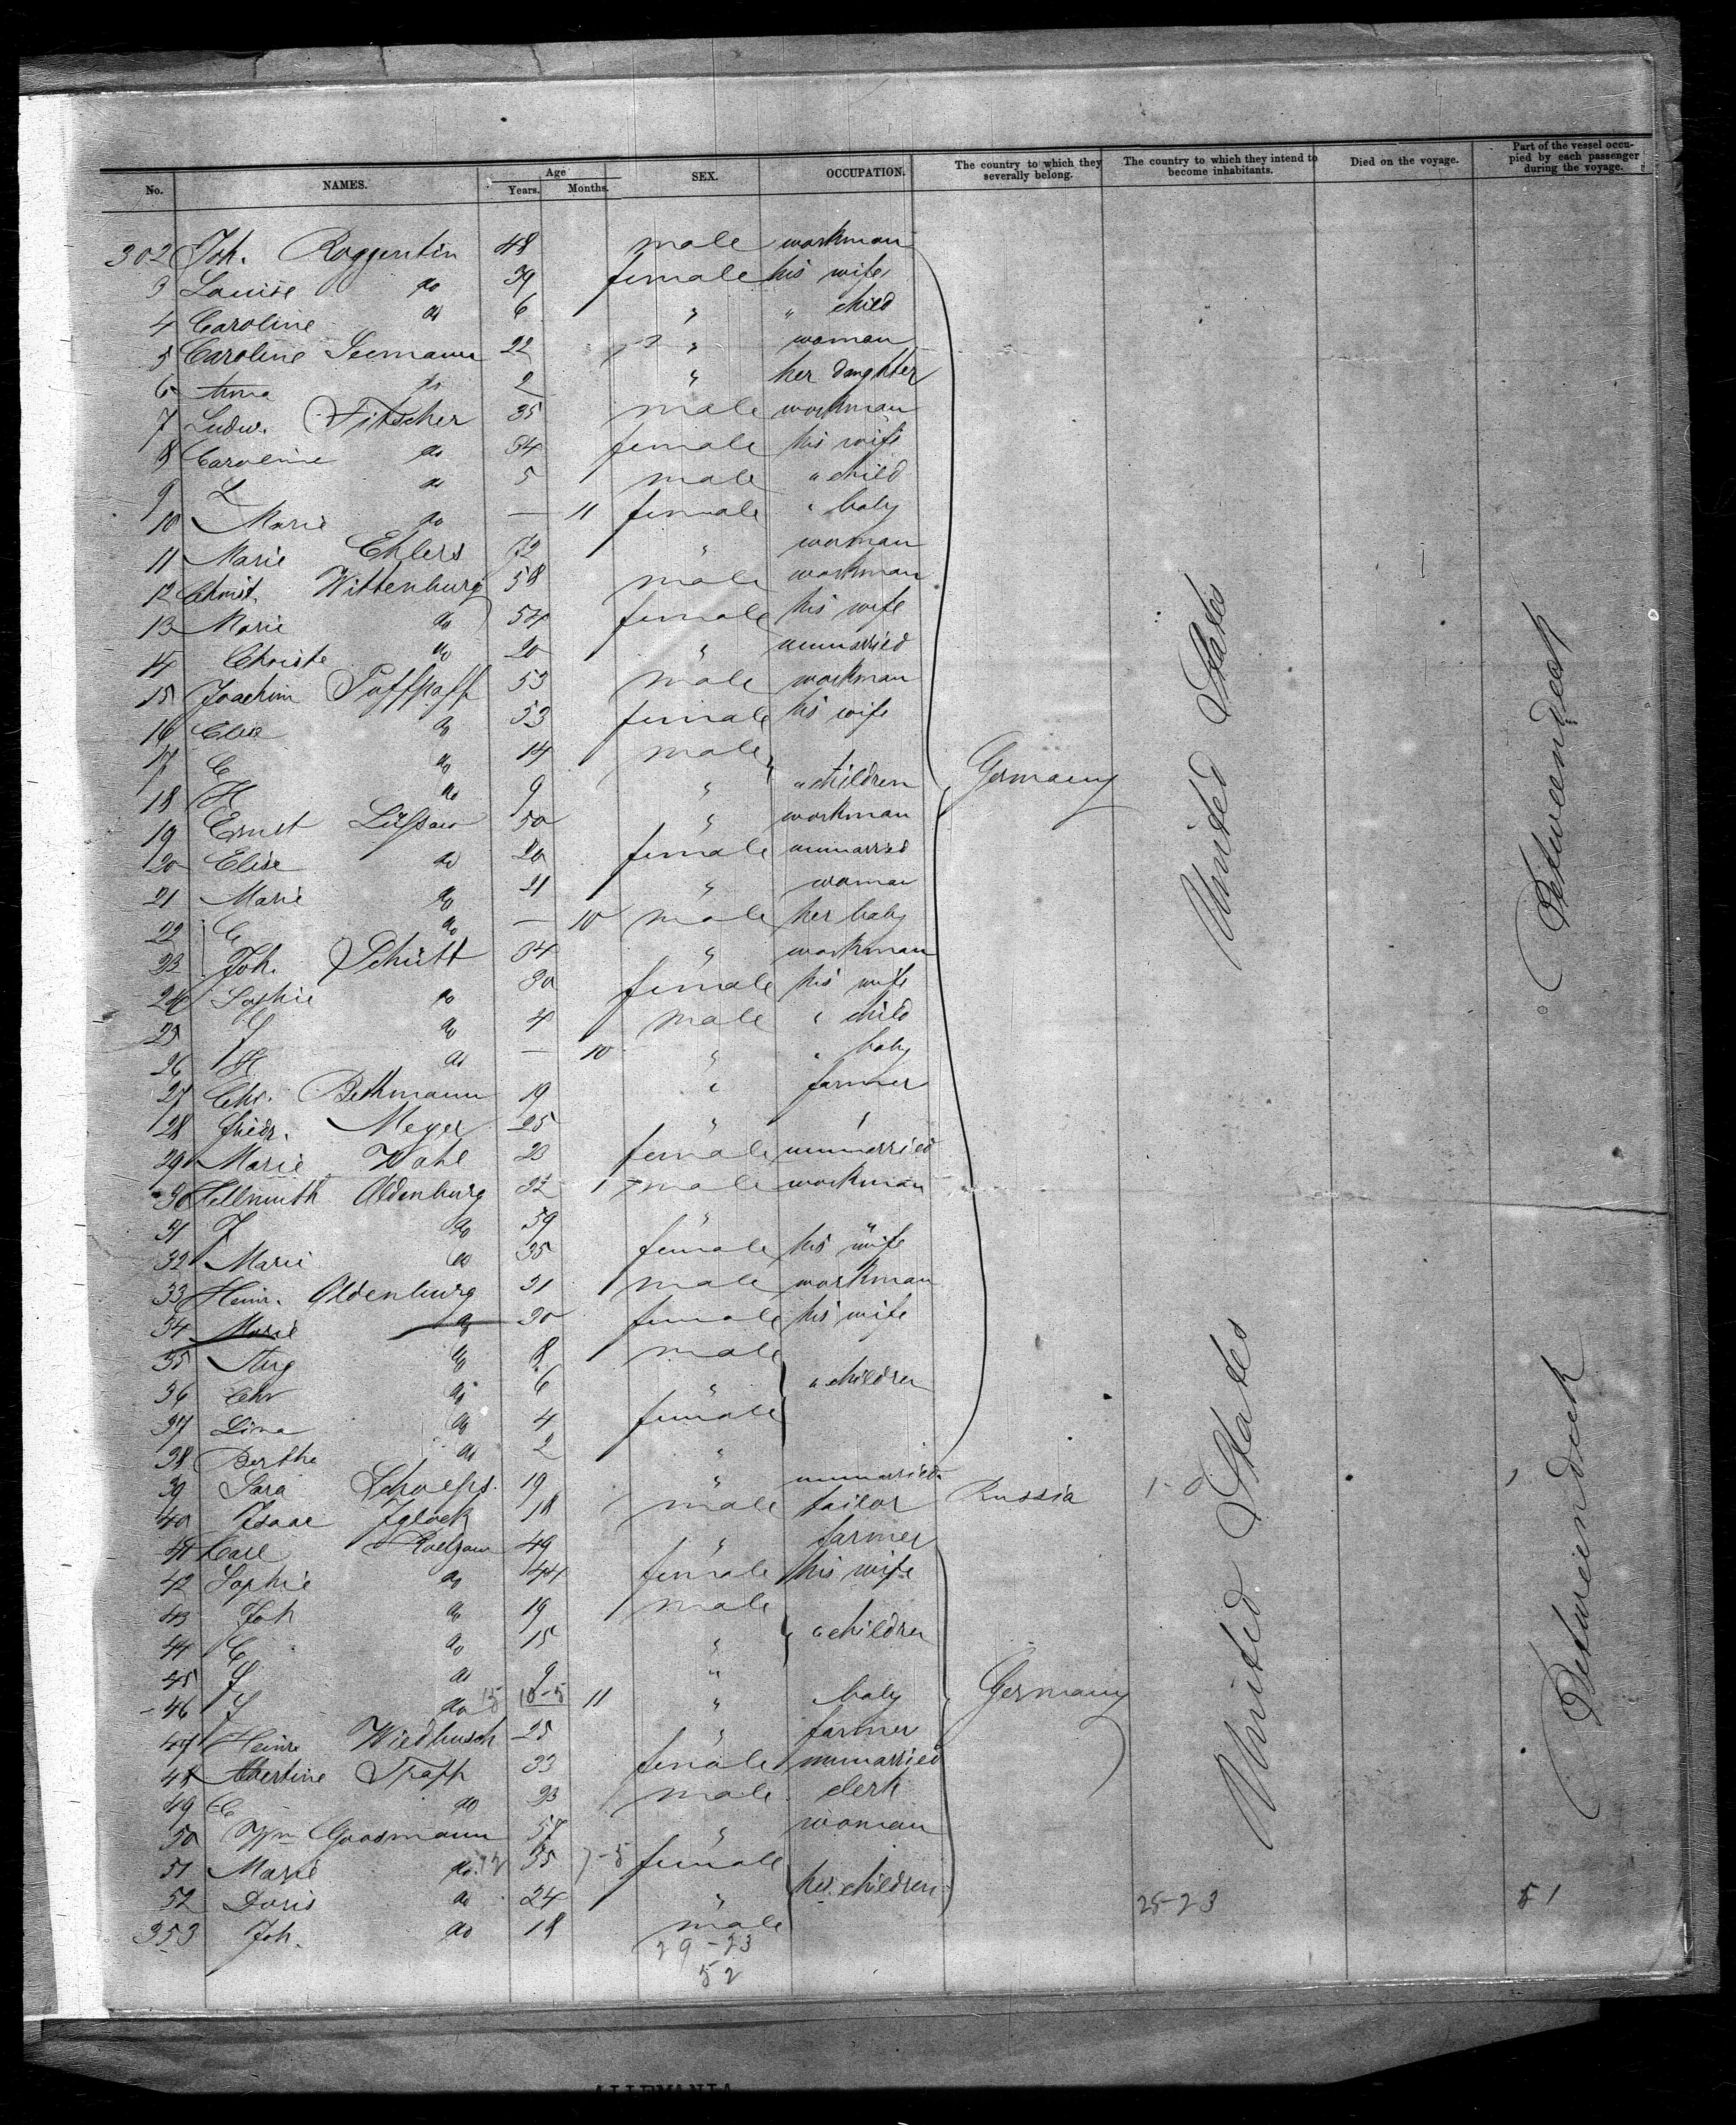 No. NAMES. Age Years. Months. SEX. OCCUPATION. The country to which they severally belong. The country to which they intend to become inhabitants. Died on the voyage. Part of the vessel occupied by each passenger during the voyage.
302 Joh. Roggentin 48 male workman
3 Louise do 39 female his wife
4 Caroline do 6 " " child
5 Caroline Seemann 22 " woman
6 Anna do 2 " her daughter
7 Ludw. Fitscher 35 male workman
8 Caroline do 34 female his wife
9 L do 5 male " child
10 Marie do — 11 female " baby
11 Marie Ehlers 72 " woman
12 Christ. Wittenburg 58 male workman
13 Marie do 54 female his wife
14 Christe do 20 " unmarried
15 Joachim Puffpaff 53 male workman
16 Elise do 53 female his wife
17 C do 14 male
18 H do 9 " " children
19 Ernst Lüssow 50 " workman
20 Elise do 20 female unmarried
21 Marie do 21 " woman
22 C do — 10 male her baby
23 Joh. Schütt 34 " workman
24 Sophie do 30 female his wife
25 J do 4 male " child
26 H do — 10 " " baby
27 Chr. Bethmann 19 " farmer
28 Friedr. Meyer 25 " "
29 Marie Wahl 23 female unmarried
30 Hellmuth Oldenburg 32 male workman
31 J do 59 " "
32 Marie do 35 female his wife
33 Heinr. Oldenburg 31 male workman
34 Marie do 30 female his wife
35 Aug do 8 male
36 Chr do 6 " " children
37 Lina do 4 female
38 Bertha do 2 "
Germany
United States
Betweendeck
39 Sara 19 " unmarried
40 Isaac Iglock 18 male tailor Russia
41 Carl 49 " farmer
42 Sophie do 44 female his wife
43 Joh do 19 male
44 C do 15 " " children
45 J do 9 "
46 J do 15 10-5 11 " baby
47 Heinr Wiedbusch 25 " farmer
48 Albertine Trapp 33 female unmarried
49 C do 23 male clerk
50 Wm Goosmann 57 " woman
51 Marie do 35 7-5 female
52 Doris do 24 " her children
353 Joh. do 18 male
Germany
United States
Betweendeck
29-23
52
25-23
51